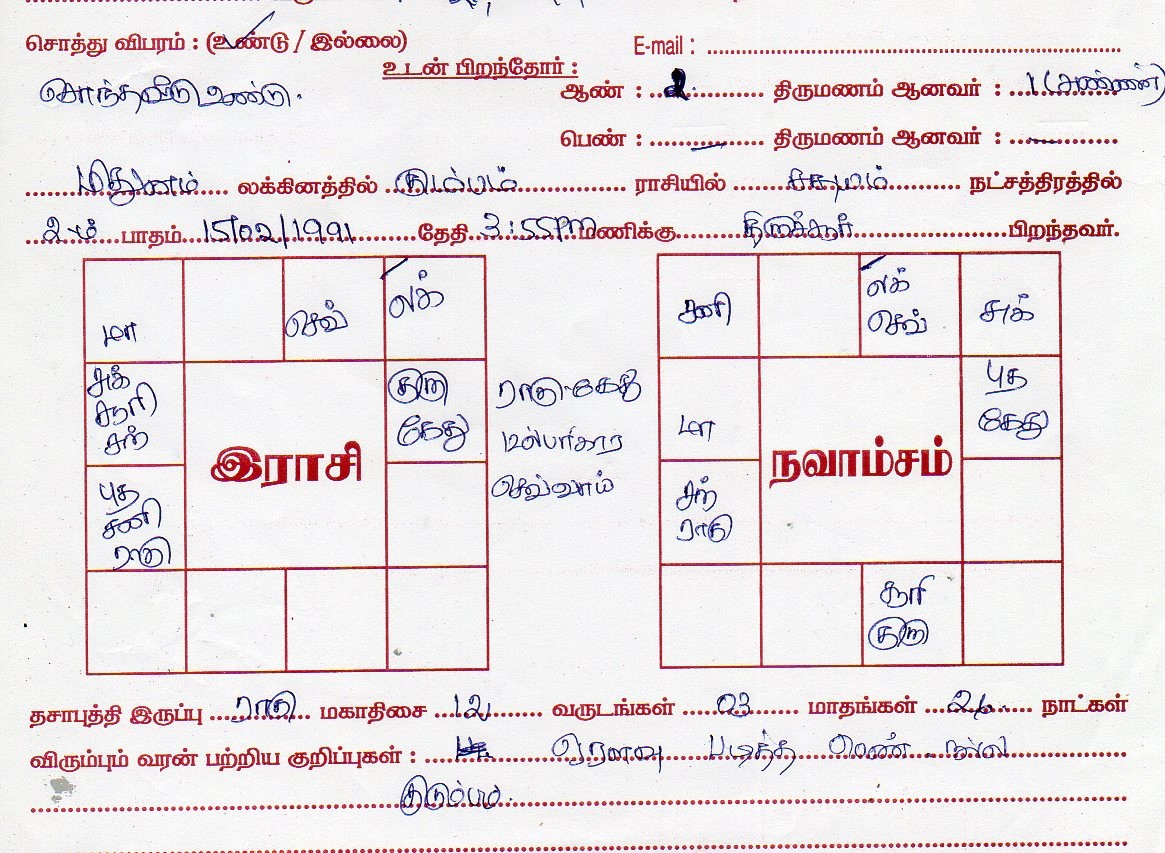 சொத்து விபரம் : (உண்டு / இல்லை)
E-mail :
சொந்தவீடு உண்டு.
உடன் பிறந்தோர் :
ஆண் : 2 திருமணம் ஆனவர் : 1 (அண்ணன்)
பெண் : — திருமணம் ஆனவர் : —
மிதுனம் லக்கினத்தில் கும்பம் ராசியில் சதயம் நட்சத்திரத்தில்
2ம் பாதம் 15/02/1991 தேதி 3:55PM மணிக்கு பிறந்தவர்.
மா செவ் லக்
சுக் சூரி சந் குரு கேது
இராசி
புத சனி ராகு
ராகு-கேது
பரிகார
செவ்வாய்
சனி லக் செவ் சுக்
மா புத கேது
நவாம்சம்
சந் ராகு
சூரி குரு
தசாபுத்தி இருப்பு ராகு மகாதிசை 12 வருடங்கள் 03 மாதங்கள் நாட்கள்
விரும்பும் வரன் பற்றிய குறிப்புகள் : ஓரளவு படித்த பெண் நல்ல
குடும்பம்.